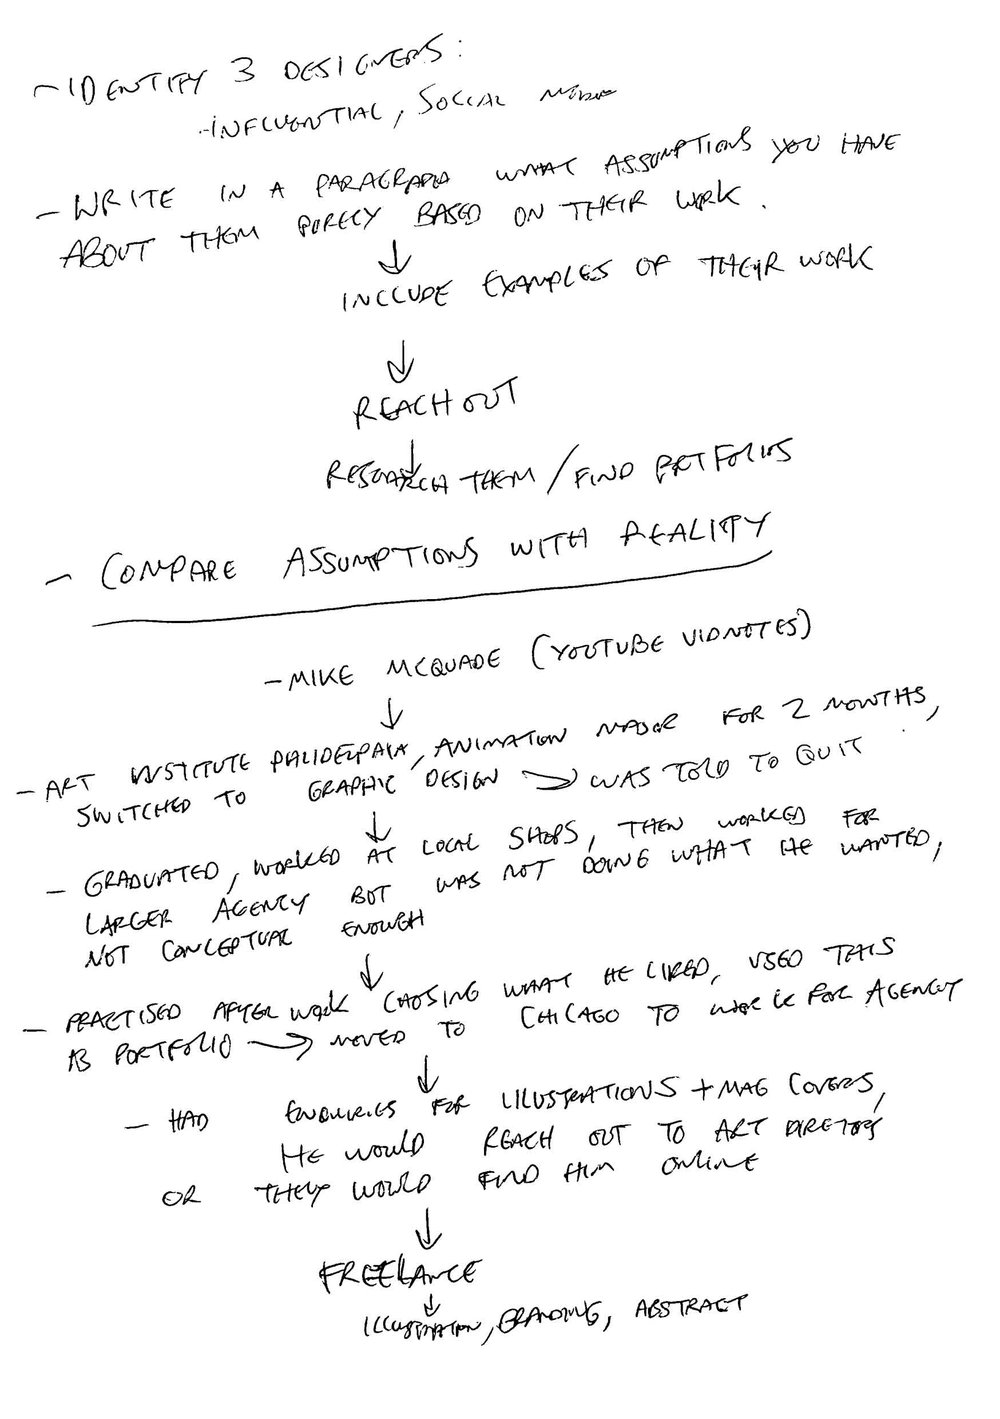 - IDENTIFY 3 DESIGNERS:
- INFLUENTIAL, SOCIAL MEDIA
- WRITE IN A PARAGRAPH WHAT ASSUMPTIONS YOU HAVE
ABOUT THEM PURELY BASED ON THEIR WORK.
↓
INCLUDE EXAMPLES OF THEIR WORK
↓
REACH OUT
↓
RESEARCH THEM / FIND PORTFOLIOS
- COMPARE ASSUMPTIONS WITH REALITY
- MIKE MCQUADE (YOUTUBE VIDNOTES)
↓
- ART INSTITUTE PHLIDELPHIA, ANIMATION MAJOR FOR 2 MONTHS,
SWITCHED TO GRAPHIC DESIGN → WAS TOLD TO QUIT
↓
- GRADUATED, WORKED AT LOCAL SHOPS, THEN WORKED FOR
LARGER AGENCY BUT WAS NOT DOING WHAT HE WANTED,
NOT CONCEPTUAL ENOUGH
↓
- PRACTISED AFTER WORK CHOSING WHAT HE LIKED, USED THIS
AS PORTFOLIO → MOVED TO CHICAGO TO WORK FOR AGENCY
↓
- HAD ENQUIRIES FOR ILLUSTRATIONS + MAG COVERS,
HE WOULD REACH OUT TO ART DIRECTORS
OR THEY WOULD FIND HIM ONLINE
↓
FREELANCE
↓
ILLUSTRATION, BRANDING, ABSTRACT